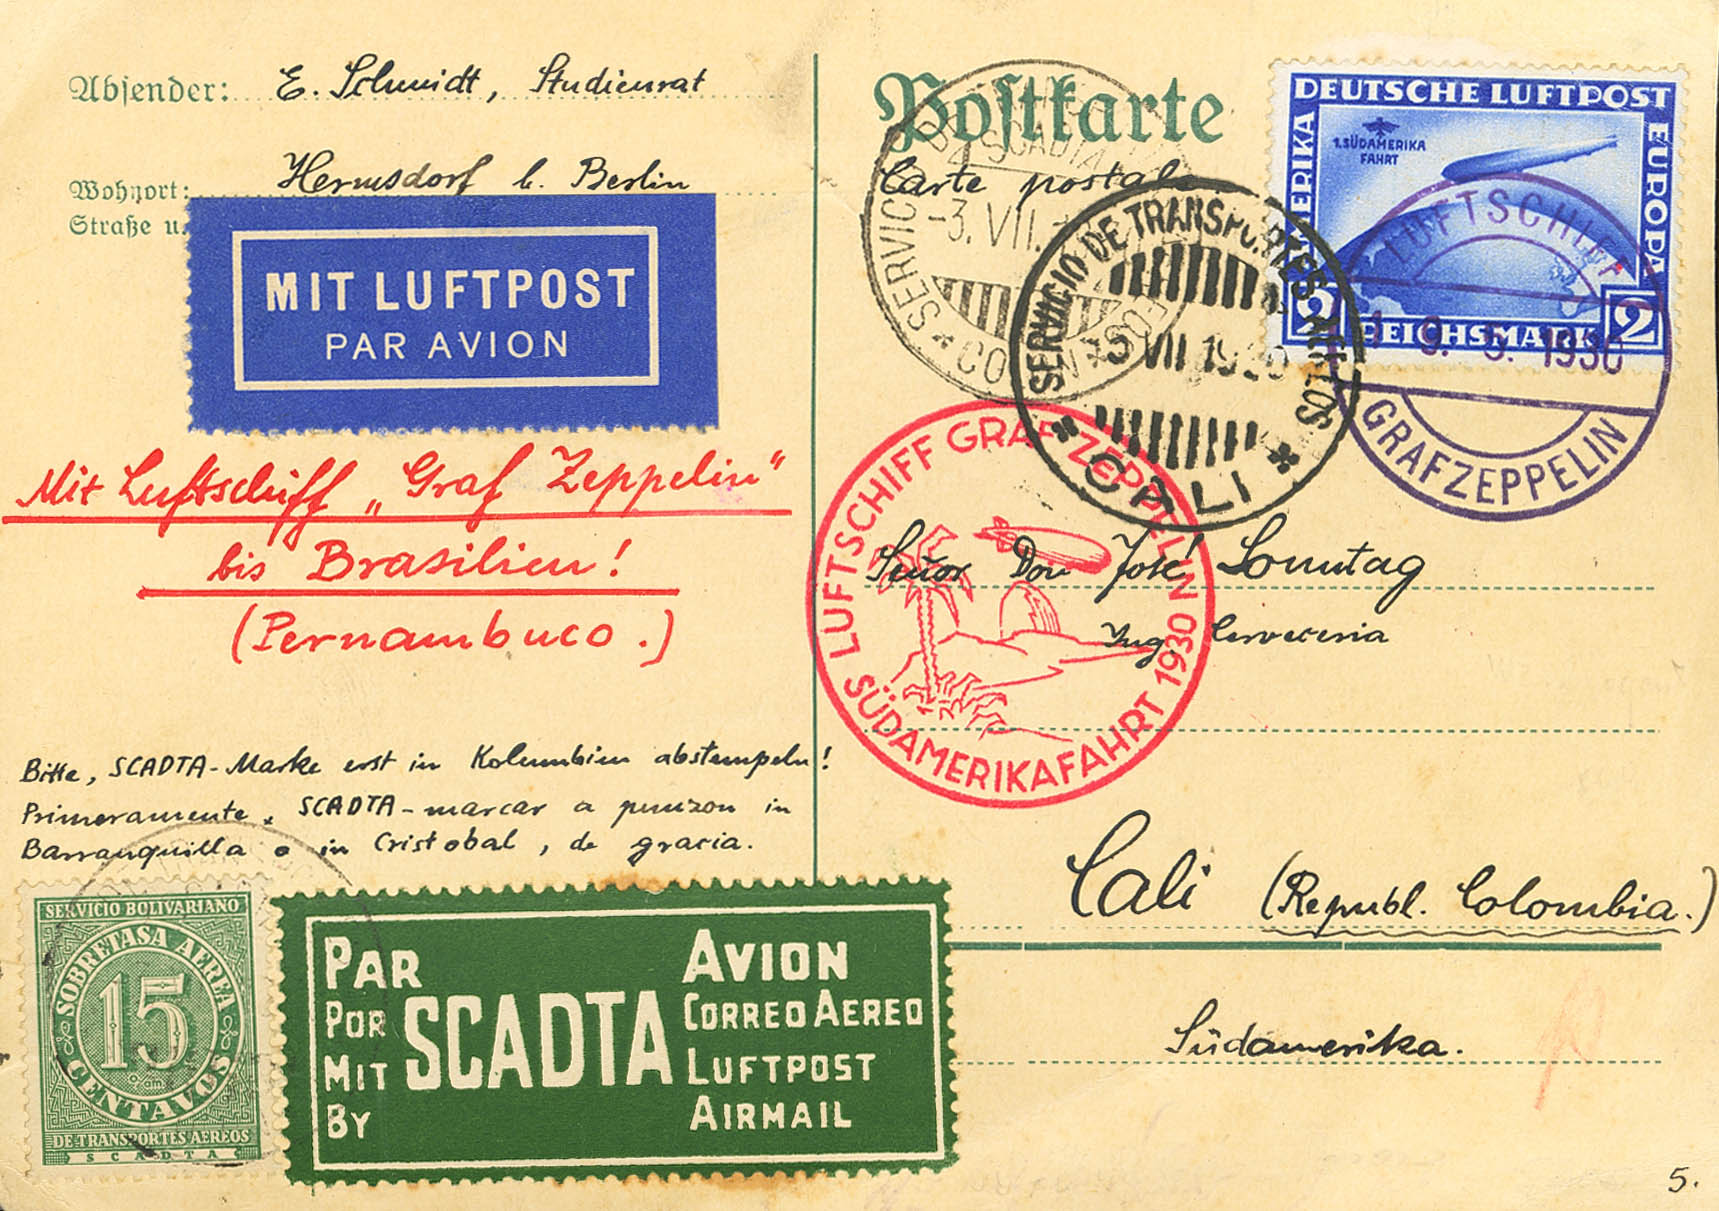 Absender: E. Schmidt, Studienrat
Wohnort: Hermsdorf b. Berlin
Straße u.
MIT LUFTPOST
PAR AVION
Mit Luftschiff „Graf Zeppelin“
bis Brasilien!
(Pernambuco.)
Bitte, SCADTA-Marke erst in Kolumbien abstempeln!
Primeramente, SCADTA-marcar a punzon in
Barranquilla o in Cristobal, de gracia.
SERVICIO BOLIVARIANO
SOBRETASA AEREA
15
CENTAVOS
DE TRANSPORTES AEREOS
SCADTA
PAR AVION
POR CORREO AEREO
MIT LUFTPOST
BY AIRMAIL
SCADTA
Postkarte
Carte postale
SERVICIO
SCADTA
-3. VII.
SERVICIO DE TRANSPORTES AEREOS
3 VII 1930
CALI
DEUTSCHE LUFTPOST
EUROPA
AMERIKA
1. SÜDAMERIKA
FAHRT
2 REICHSMARK 2
LUFTSCHIFF
19. 5. 1930
GRAF ZEPPELIN
LUFTSCHIFF GRAF ZEPPELIN
SÜDAMERIKAFAHRT 1930
Señor Don José Sonntag
Ing. Cerveceria
Cali (Republ. Colombia.)
Südamerika.
5.